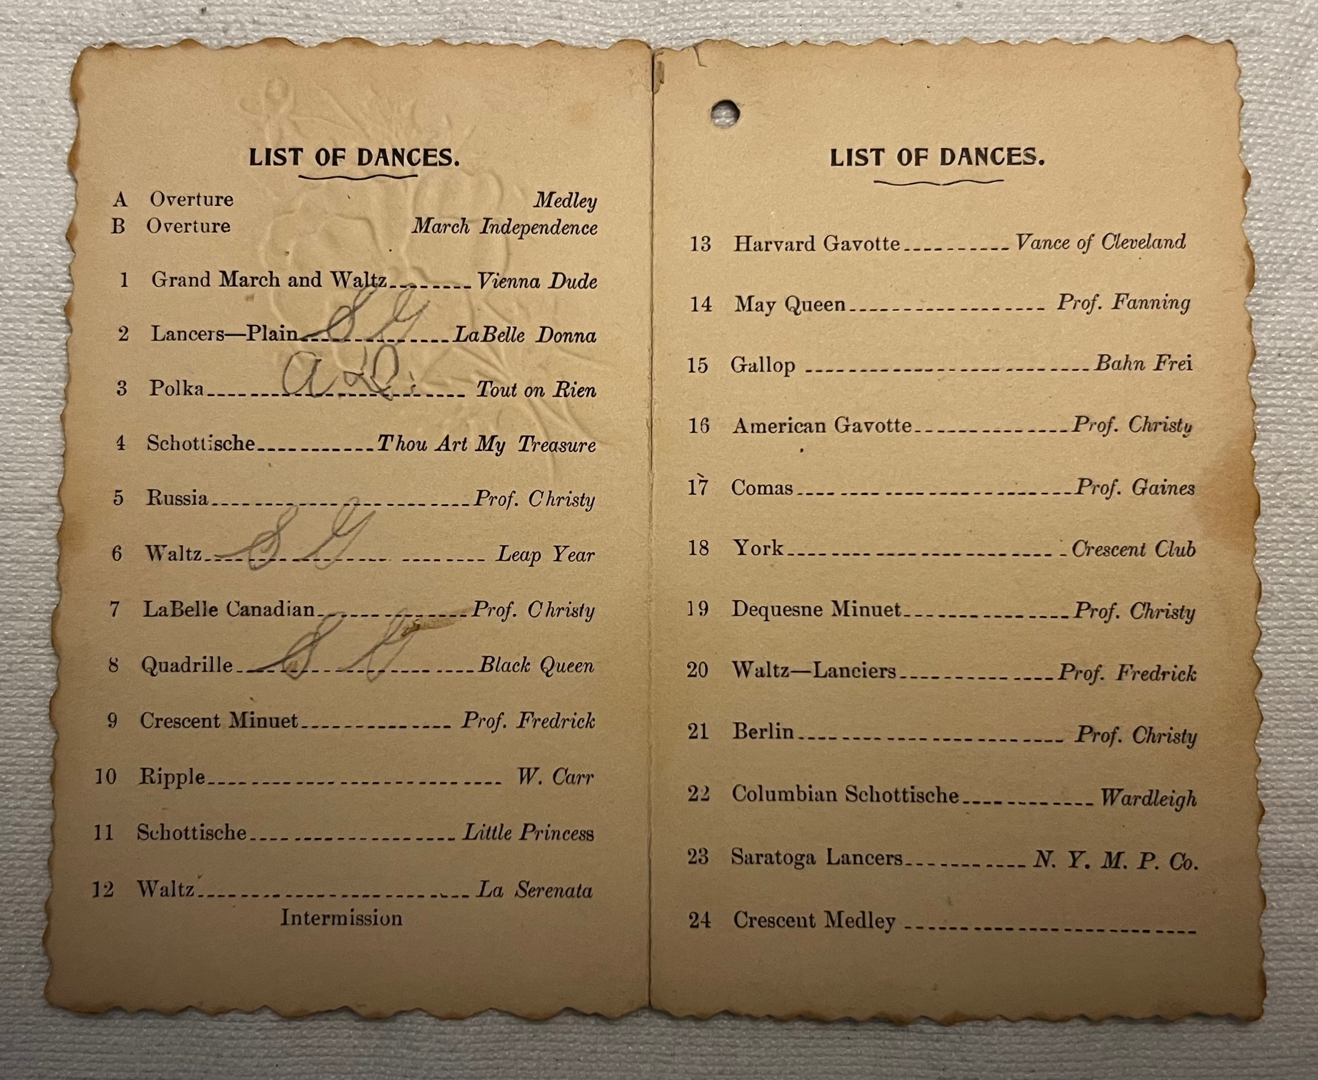 LIST OF DANCES.
A Overture Medley
B Overture March Independence
1 Grand March and Waltz Vienna Dude
2 Lancers—Plain S G LaBelle Donna
3 Polka Tout on Rien
4 Schottische Thou Art My Treasure
5 Russia Prof. Christy
6 Waltz S G Leap Year
7 LaBelle Canadian Prof. Christy
8 Quadrille S G Black Queen
9 Crescent Minuet Prof. Fredrick
10 Ripple W. Carr
11 Schottische Little Princess
12 Waltz La Serenata
Intermission
LIST OF DANCES.
13 Harvard Gavotte Vance of Cleveland
14 May Queen Prof. Fanning
15 Gallop Bahn Frei
16 American Gavotte Prof. Christy
17 Comas Prof. Gaines
18 York Crescent Club
19 Dequesne Minuet Prof. Christy
20 Waltz—Lanciers Prof. Fredrick
21 Berlin Prof. Christy
22 Columbian Schottische Wardleigh
23 Saratoga Lancers N. Y. M. P. Co.
24 Crescent Medley